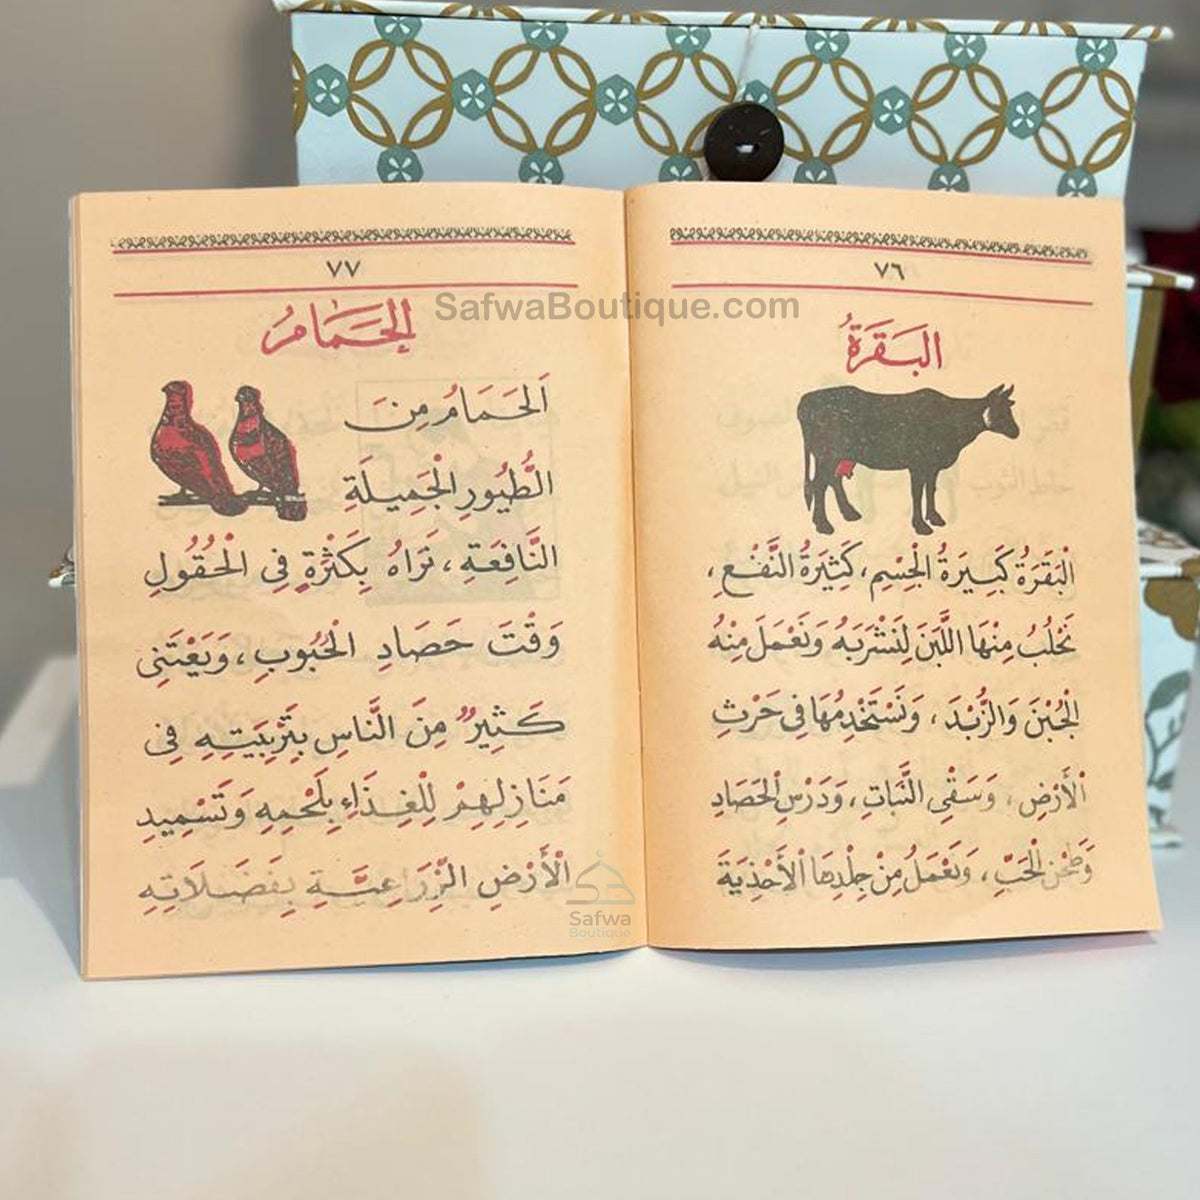 SafwaBoutique.com
٧٦
البَقَرَةُ
الْبَقَرَةُ كَبِيرَةُ الْجِسْمِ، كَثِيرَةُ النَّفْعِ،
نَحْلُبُ مِنْهَا اللَّبَنَ لِنَشْرَبَهُ وَنَعْمَلَ مِنْهُ
الْجُبْنَ وَالزُّبْدَ، وَنَسْتَخْدِمُهَا فِي حَرْثِ
الْأَرْضِ، وَسَقْيِ النَّبَاتِ، وَدَرْسِ الْحَصَادِ
وَطَحْنِ الْحَبِّ، وَنَعْمَلُ مِنْ جِلْدِهَا الْأَحْذِيَةَ
٧٧
الحَمَامُ
اَلْحَمَامُ مِنَ
الطُّيُورِ الْجَمِيلَةِ
النَّافِعَةِ، نَرَاهُ بِكَثْرَةٍ فِي الْحُقُولِ
وَقْتَ حَصَادِ الْحُبُوبِ، وَيَعْتَنِي
كَثِيرٌ مِنَ النَّاسِ بِتَرْبِيَتِهِ فِي
مَنَازِلِهِمْ لِلْغِذَاءِ بِلَحْمِهِ وَتَسْمِيدِ
الْأَرْضِ الزِّرَاعِيَّةِ بِفَضَلَاتِهِ
Safwa
Boutique